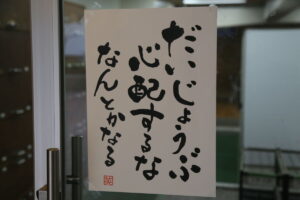 だいじょうぶ
心配するな
なんとかなる